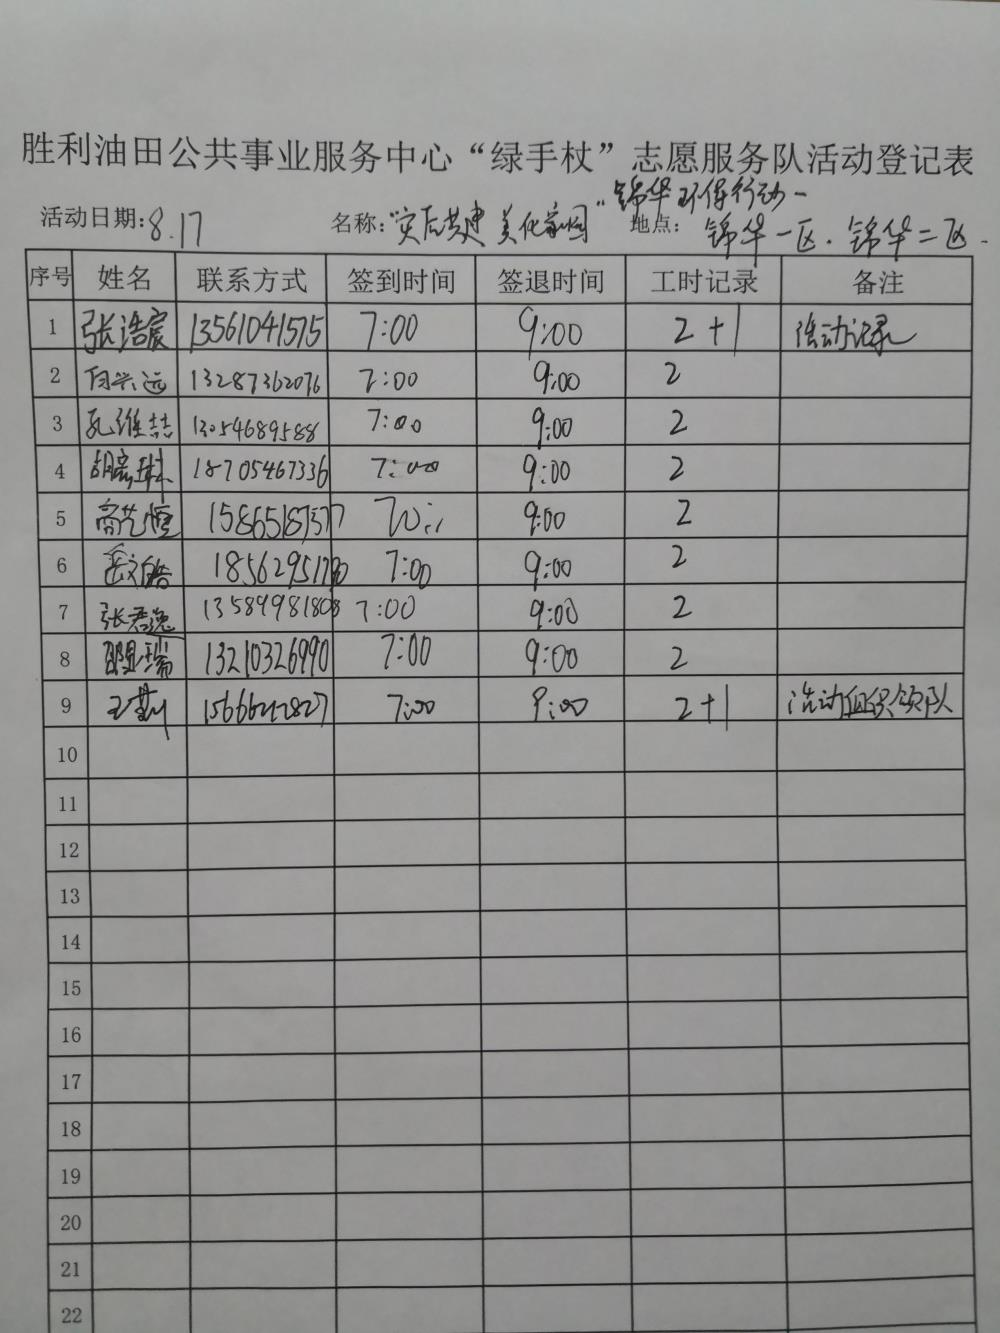 胜利油田公共事业服务中心“绿手杖”志愿服务队活动登记表
锦华环保行动一
活动日期:8.17 名称:“实居共建 美化家园” 地点: 锦华一区.锦华二区.
序号 姓名 联系方式 签到时间 签退时间 工时记录 备注
1 张浩宸 13561041575 7:00 9:00 2+1 活动记录
2 兴远 13287362076 7:00 9:00 2
3 孔维喆 13054689588 7:00 9:00 2
4 胡 琳 18705467336 7:00 9:00 2
5 高艺恒 15865187377 9:00 2
6 185629517 7:00 9:00 2
7 张君逸 13589981808 7:00 9:00 2
8 瑞 13210326990 7:00 9:00 2
9 王莉 7:00 9:00 2+1 活动组织领队
10
11
12
13
14
15
16
17
18
19
20
21
22